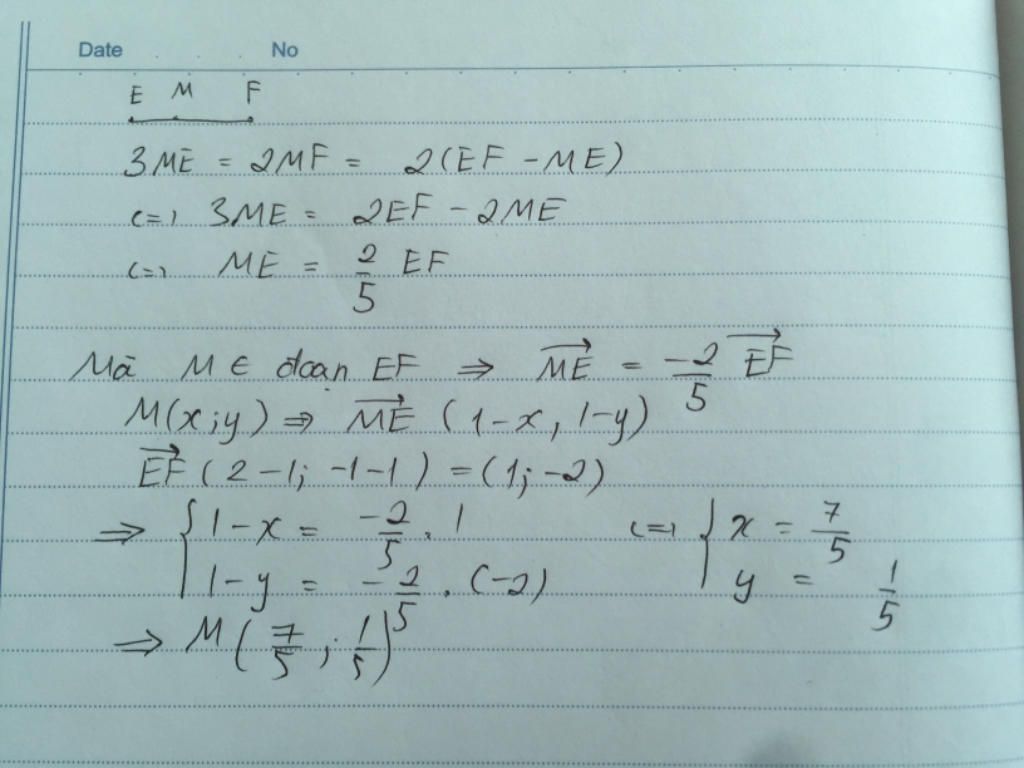 Date No
E M F
3ME = 2MF = 2(EF - ME)
<=> 3ME = 2EF - 2ME
<=> ME = 2/5 EF
Mà M ∈ đoạn EF => \overrightarrow{ME} = -2/5 \overrightarrow{EF}
M(x;y) => \overrightarrow{ME} (1-x, 1-y)
\overrightarrow{EF} (2-1; -1-1) = (1; -2)
=> { 1-x = -2/5 . 1 <=> { x = 7/5
1-y = -2/5 . (-2) y = 1/5
=> M(7/5 ; 1/5)